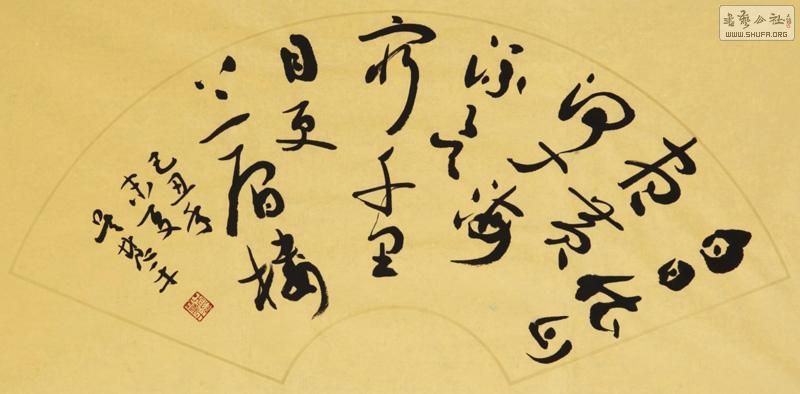 白日依山
尽黄
河入海
流欲
穷千里
目更
上一层楼
己丑年
末夏
书艺公社
WWW.SHUFA.ORG